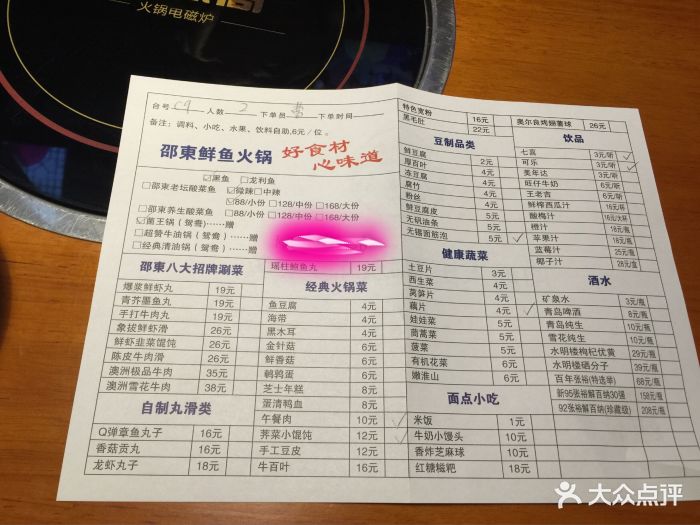 火锅电磁炉
台号 C9 人数 2 下单员 下单时间
备注：调料、小吃、水果、饮料自助,6元/位。
邵東鲜鱼火锅 好食材 心味道
☑黑鱼 □龙利鱼
□邵東老坛酸菜鱼 ☑微辣□中辣
☑88/小份 □128/中份 □168/大份
□邵東养生酸菜鱼 □88/小份 □128/中份 □168/大份
☑菌王锅（鸳鸯）……赠
□超赞牛油锅（鸳鸯）……赠
□经典清油锅（鸳鸯）……赠
邵東八大招牌涮菜
爆浆鲜虾丸 19元
青芥墨鱼丸 19元
手打牛肉丸 19元
象拔鲜虾滑 26元
鲜虾韭菜馄饨 26元
陈皮牛肉滑 26元
澳洲极品牛肉 35元
澳洲雪花牛肉 38元
自制丸滑类
Q弹章鱼丸子 16元
香菇贡丸 16元
龙虾丸子 18元
瑶柱鲍鱼丸 19元
经典火锅菜
鱼豆腐 4元
海带 4元
黑木耳 4元
金针菇 6元
鲜香菇 6元
鹌鹑蛋 6元
芝士年糕 8元
蛋清鸭血 8元
午餐肉 10元 ✓
荠菜小馄饨 12元 ✓
手工豆皮 12元
牛百叶 16元
特色宽粉 16元
黑毛肚 22元
豆制品类
鲜豆腐 2元
厚百叶 4元
冻豆腐 4元
腐竹 4元
粉丝 4元
鲜豆腐皮 5元
无矾油条 5元
无锡面筋泡 5元 ✓
健康蔬菜
土豆片 3元
西生菜 4元
莴笋片 4元
藕片 4元 ✓
娃娃菜 5元
茼蒿菜 5元
菠菜 5元
有机花菜 6元
嫩淮山 6元
面点小吃
米饭 1元
牛奶小馒头 10元
香炸芝麻球 10元
红糖糍粑 18元
奥尔良烤翅薯球 26元
饮品
七喜 3元/听 ✓
可乐 3元/听 ✓
美年达 3元/听
旺仔牛奶 6元/听
王老吉 6元/听
鲜榨西瓜汁 16元/杯
酸梅汁 16元/大杯
橙汁 18元/扎
苹果汁 18元/扎
蓝莓汁 25元/扎
椰子汁 28元/盒
酒水
矿泉水 3元/瓶
青岛啤酒 8元/瓶
青岛纯生 10元/瓶
雪花纯生 10元/瓶
水明楼枸杞优黄 29元/瓶
水明楼硒分子 39元/瓶
百年张裕(特选举) 68元/瓶
新95张裕解百纳30强 158元/瓶
92张裕解百纳(珍藏级) 208元/瓶
大众点评